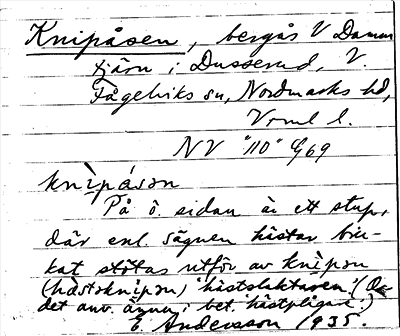 Knipåsen, bergås V Damm
tjärn i Dusserud, V.
Fågelviks sn, Nordmarks hd,
Vrml l.
NV "110" G69
knìpåsɷn
På ö. sidan är ett stup,
där enl. sägnen hästar bru-
kat stötas utför av knìpɷn
(hästsknìpɷn) hästslaktaren. (Or-
det anv. ännu i bet. 'hästplågare'.)
E Andersson 1935